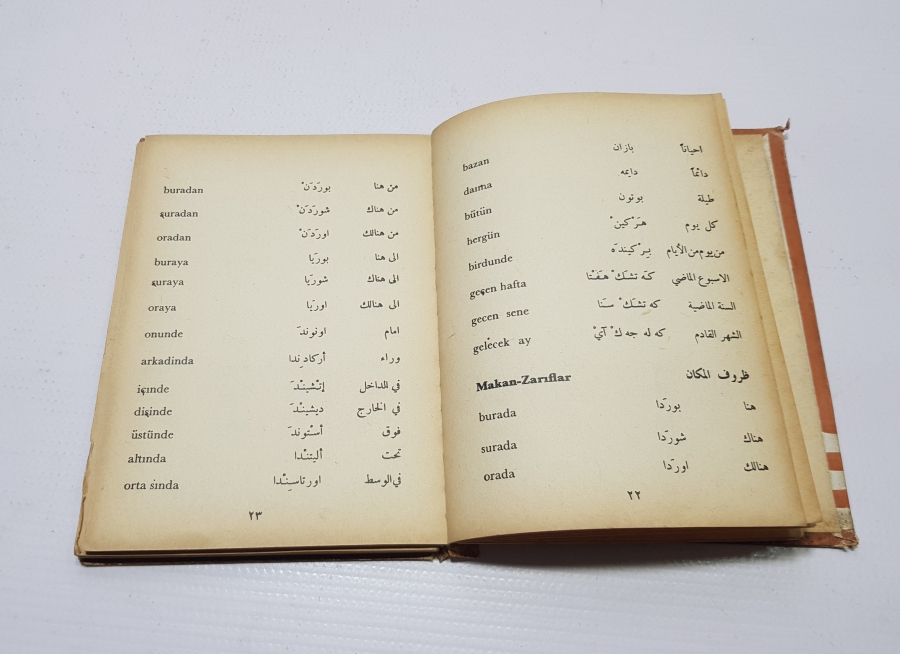 احياناً بازان bazan
دائماً دايمه daima
طيلة بوتون bütün
كل يوم هَرْكينْ hergün
من يوم من الأيام بِيرْ كيندَه birdunde
الاسبوع الماضي كَه تشَكْ هَفْتا geçen hafta
السنة الماضية كه تشَكْ سَنا gecen sene
الشهر القادم كه له جه كْ آيْ gelecek ay
ظروف المكان Makan-Zarıflar
هنا بورَدا burada
هناك شورَدا surada
هنالك اورَدا orada
٢٢
من هنا بورَدَنْ buradan
من هناك شورَدَنْ şuradan
من هنالك اورَدَنْ oradan
الى هنا بورَيا buraya
الى هناك شورَيا şuraya
الى هنالك اورَيا oraya
امام اونوندَ onunde
وراء أركادِندا arkadinda
في للداخل إتْشينْدَ içınde
في الخارج ديشينْدَ dişinde
فوق أسْتوندَ üstünde
تحت أليتنْدا altında
في الوسط اورتاسِينْدا orta sinda
٢٣